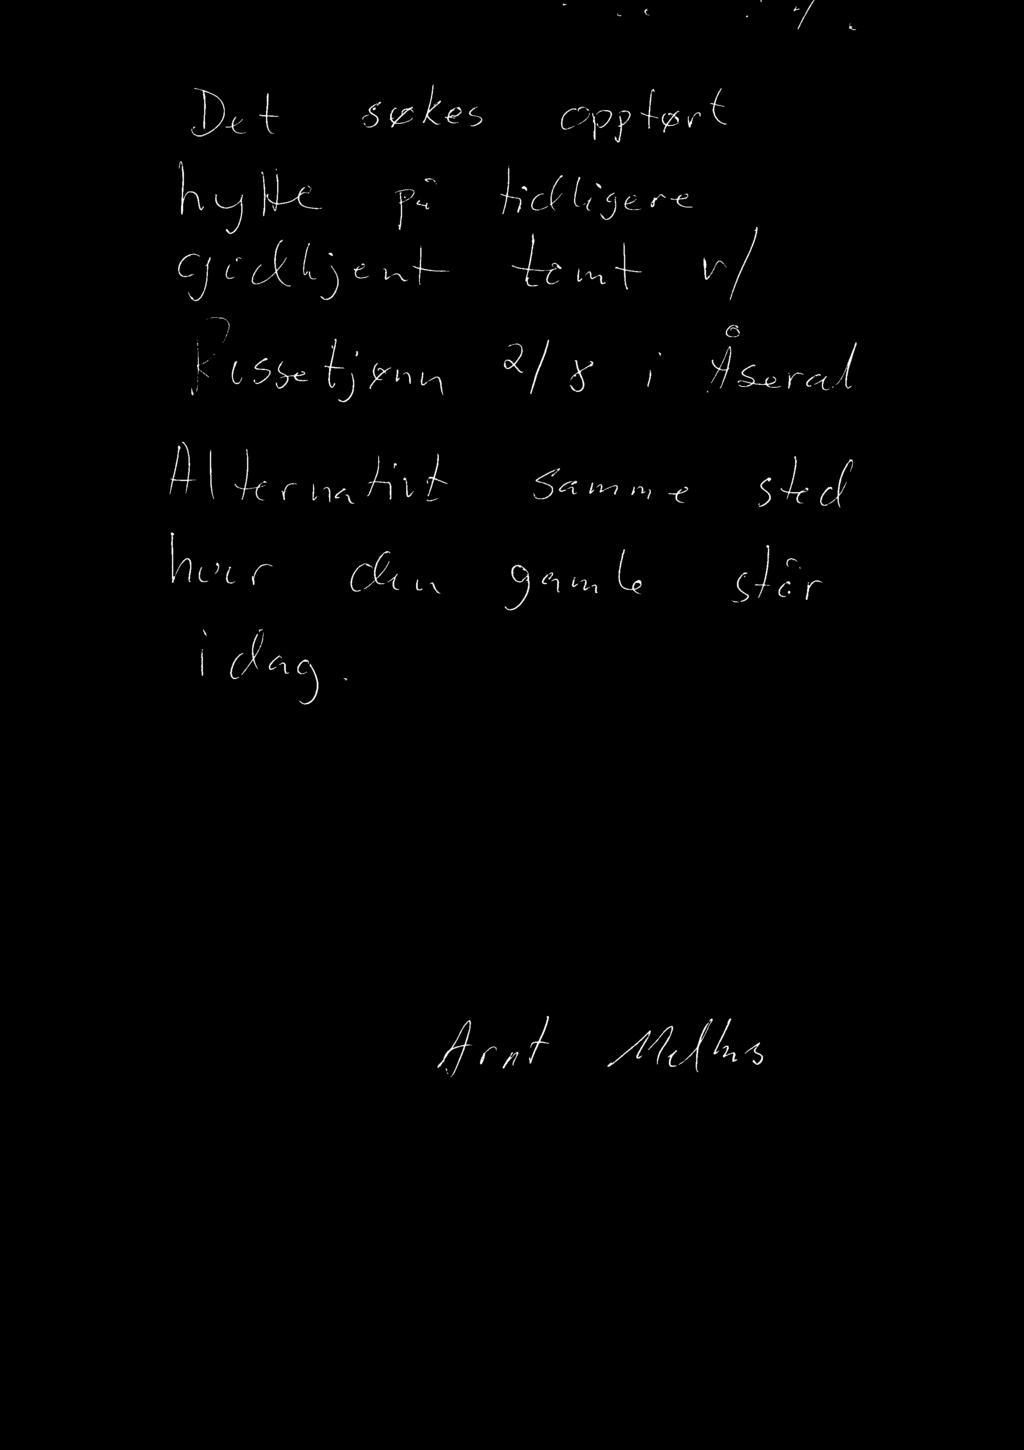 Det søkes oppført
hytte på tidligere
godkjent tomt v/
2/8 i Åseral
Alternativt samme sted
hvor den gamle står
idag.
Arnt